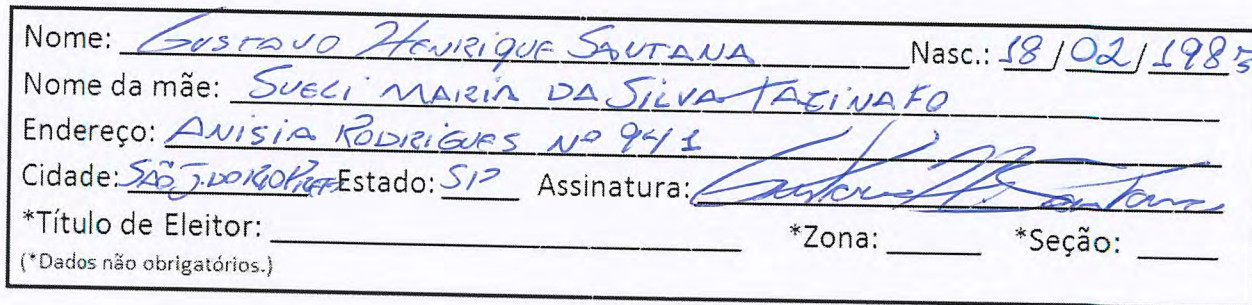 Nome: GUSTAVO HENRIQUE SANTANA Nasc.: 18/02/1985
Nome da mãe: SUELI MARIA DA SILVA TAZINAFO
Endereço: ANISIA RODRIGUES Nº 941
Cidade: SÃO J. DO RIO PRETO Estado: SP Assinatura: Gustavo H Santana
*Título de Eleitor: *Zona: *Seção:
(*Dados não obrigatórios.)